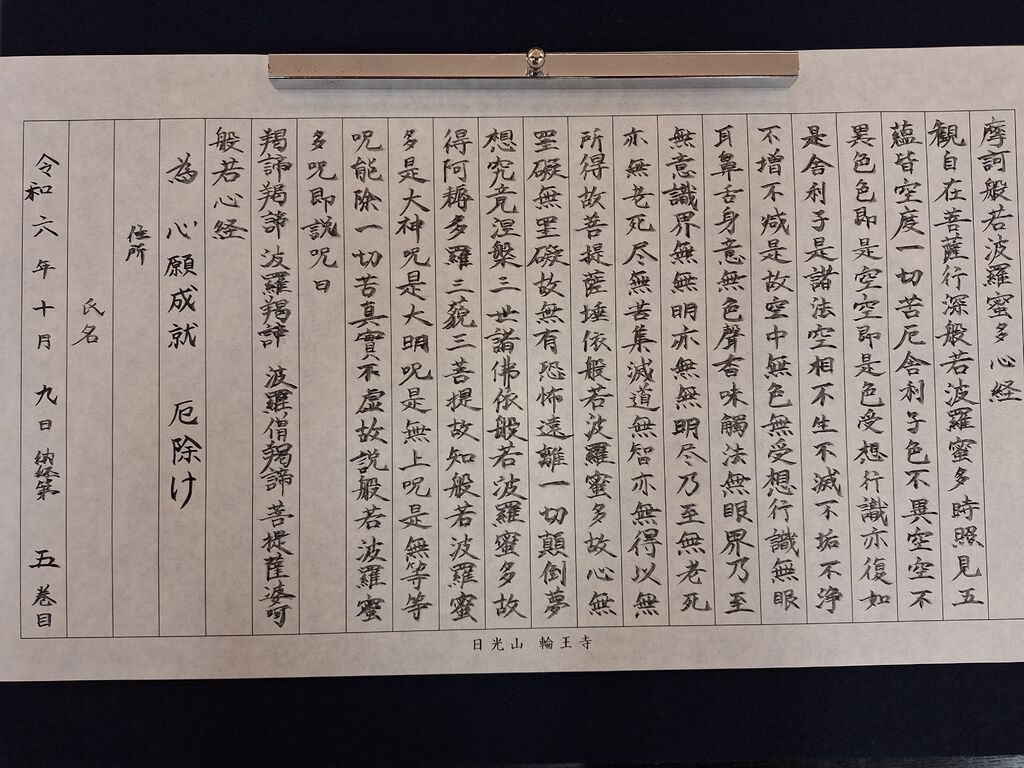 摩訶般若波羅蜜多心経
観自在菩薩行深般若波羅蜜多時照見五
蘊皆空度一切苦厄舎利子色不異空空不
異色色即是空空即是色受想行識亦復如
是舎利子是諸法空相不生不滅不垢不浄
不増不減是故空中無色無受想行識無眼
耳鼻舌身意無色聲香味觸法無眼界乃至
無意識界無無明亦無無明尽乃至無老死
亦無老死尽無苦集滅道無智亦無得以無
所得故菩提薩埵依般若波羅蜜多故心無
罣礙無罣礙故無有恐怖遠離一切顛倒夢
想究竟涅槃三世諸佛依般若波羅蜜多故
得阿耨多羅三藐三菩提故知般若波羅蜜
多是大神呪是大明呪是無上呪是無等等
呪能除一切苦真實不虚故説般若波羅蜜
多呪即説呪曰
羯諦羯諦 波羅羯諦 波羅僧羯諦 菩提薩婆呵
般若心経
為 心願成就 厄除け
住所
氏名
令和六年十月九日 納経第 五巻目
日光山 輪王寺